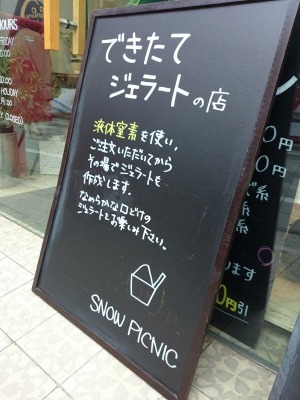 できたて
ジェラートの店
液体窒素を使い、
ご注文いただいてから
その場でジェラートを
作成します。
なめらかな口どけの
ジェラートをお楽しみ下さい。
SNOW PICNIC
HOURS
FRIDAY
HOLIDAY
CLOSED)
0円
0円
系
系
ります
0円引